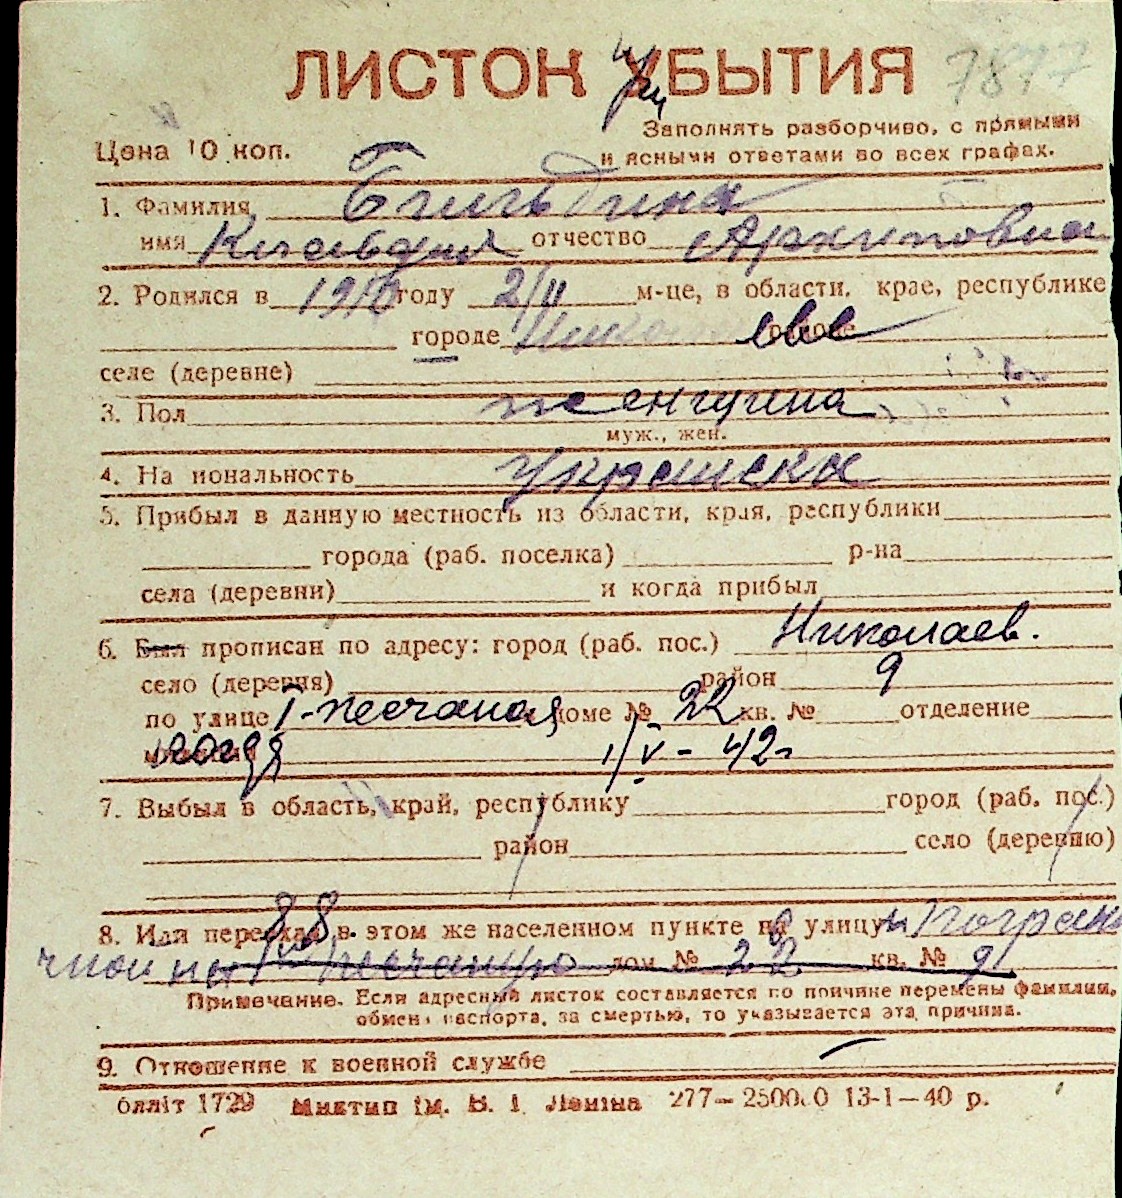 ЛИСТОК УБЫТИЯ 7877
Заполнять разборчиво, с прямыми
Цена 10 коп. и ясными ответами во всех графах.
1. Фамилия Бильдина
имя Клавдия отчество Архиповна
2. Родился в 1910 году 2/II м-це, в области, крае, республике
городе Николаеве районе
селе (деревне)
3. Пол женщина
муж., жен.
4. Национальность украинка
5. Прибыл в данную местность из области, края, республики
города (раб. поселка) р-на
села (деревни) и когда прибыл
6. Был прописан по адресу: город (раб. пос.) Николаев.
село (деревня) район 9
по улице I-песчаная доме № 22 кв. № отделение
когда 1/V-42г
7. Выбыл в область, край, республику город (раб. пос.)
район село (деревню)
8. Или переехал в этом же населенном пункте на улицу
дом № 22 кв. № 9
Примечание. Если адресный листок составляется по причине перемены фамилии,
обмена паспорта, за смертью, то указывается эта причина.
9. Отношение к военной службе
1729 Миктип ім. В. І. Леніна 277—250000 13-1—40 р.